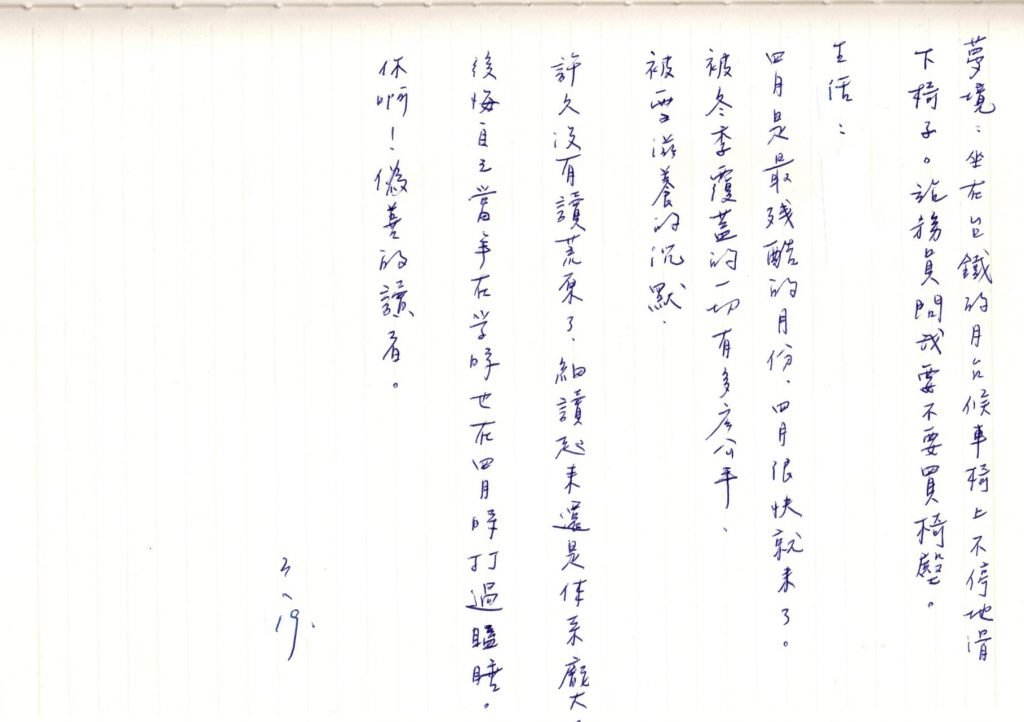 夢境：坐在台鐵的月台候車椅上不停地滑
下椅子。站務員問我要不要買椅墊。
生活：
四月是最残酷的月份、四月很快就来了。
被冬季覆蓋的一切有多広公平、
被要滋養的沉默.
許久没有讀荒原了、細讀起来還是体系龐大。
後悔自己當年在学時也在四月時打過瞌睡。
你啊！偽善的讀者。
3、19.